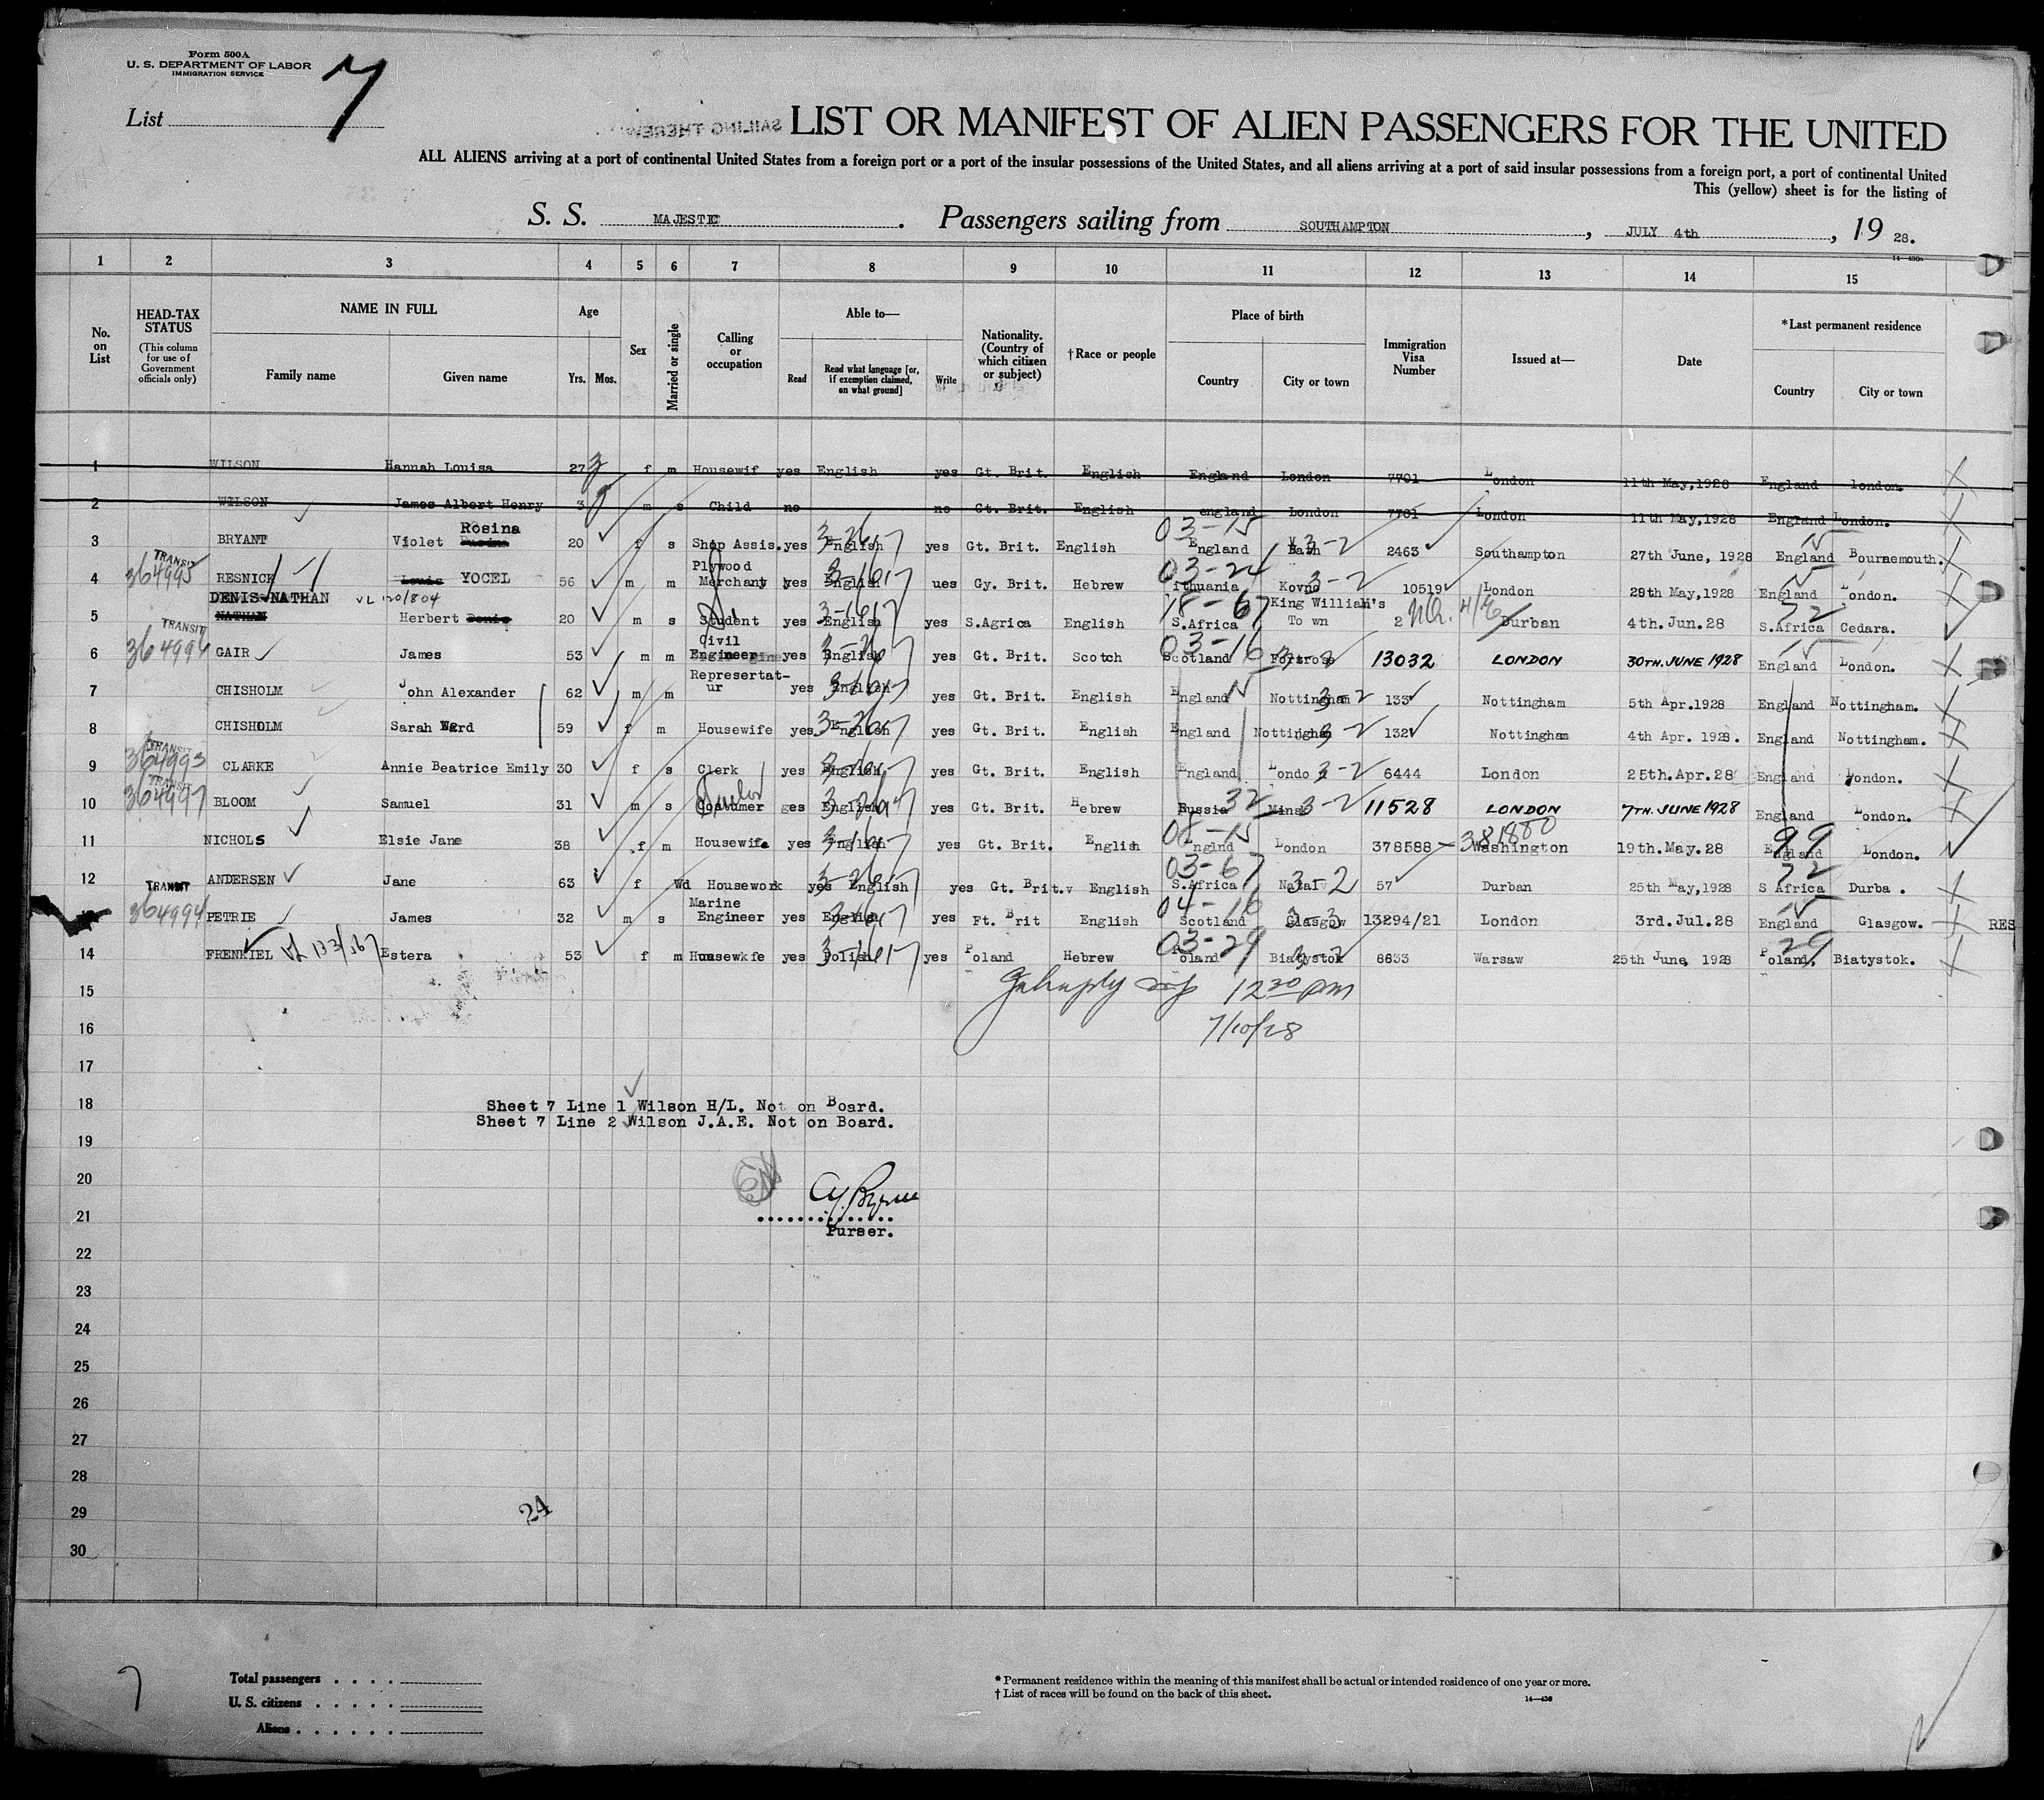 Form 500A
U. S. DEPARTMENT OF LABOR
IMMIGRATION SERVICE
7
List
SAILING THEREW
LIST OR MANIFEST OF ALIEN PASSENGERS FOR THE UNITED
ALL ALIENS arriving at a port of continental United States from a foreign port or a port of the insular possessions of the United States, and all aliens arriving at a port of said insular possessions from a foreign port, a port of continental United
This (yellow) sheet is for the listing of
S. S. MAJESTIC . Passengers sailing from SOUTHAMPTON , JULY 4th , 19 28.
1 2 3 4 5 6 7 8 9 10 11 12 13 14 15
No. on List
HEAD-TAX STATUS
(This column for use of Government officials only)
NAME IN FULL
Family name Given name
Age
Yrs. Mos.
Sex
Married or single
Calling or occupation
Able to—
Read
Read what language [or, if exemption claimed, on what ground]
Write
Nationality. (Country of which citizen or subject)
†Race or people
Place of birth
Country City or town
Immigration Visa Number
Issued at—
Date
*Last permanent residence
Country City or town
1 WILSON Hannah Louisa 27 f m Housewif yes English yes Gt. Brit. English England London 7701 London 11th May,1928 England london.
2 WILSON James Albert Henry 3 m s Child no no Gt. Brit. English england London 7701 London 11th May,1928 England London.
Rosina 03-15
3 BRYANT Violet 20 f s Shop Assis. yes English yes Gt. Brit. English England Bath 3-2 2463 Southampton 27th June, 1928 England Bournemouth.
TRANSIT 364995 Plywood 03-24
4 RESNICK Louis YOCEL 56 m m Merchant yes English ues Gy. Brit. Hebrew ithuania Kovno 3-2 10519 London 28th May,1928 England London.
DENIS-NATHAN VL 120/804 King William's
5 NATHAN Herbert Denis 20 m s Student yes English yes S.Agrica English S.Africa To wn 2 Durban 4th. Jun.28 S.Africa Cedara.
TRANSIT Civil 03-16
6 GAIR James 53 m m Engineer yes English yes Gt. Brit. Scotch Scotland Fortrose 13032 LONDON 30TH. JUNE 1928 England London.
Representat-
7 CHISHOLM John Alexander 62 m m ur yes English yes Gt. Brit. English England Nottingham 133 Nottingham 5th Apr.1928 England Nottingham.
8 CHISHOLM Sarah Ward 59 f m Housewife yes English yes Gt. Brit. English England Nottingham 132 Nottingham 4th Apr. 1928. England Nottingham.
TRANSIT 364993
9 CLARKE Annie Beatrice Emily 30 f s Clerk yes English yes Gt. Brit. English England Londo 3-2 6444 London 25th.Apr.28 England London.
TRANSIT 364997
10 BLOOM Samuel 31 m s Costumer ges English yes Gt. Brit. Hebrew Russia 32 Minsk 3-2 11528 LONDON 7TH. JUNE 1928 England London.
381880
11 NICHOLS Elsie Jane 38 f m Housewife yes English yes Gt. Brit. English Englnd London 378588 Washington 19th.May.28 England 99 London.
03-67 72
12 ANDERSEN Jane 63 f Wd Housework yes English yes Gt. Brit.v English S.Africa Natal 3-2 57 Durban 25th May,1928 S Africa Durba .
TRANSIT 364994 Marine
PETRIE James 32 m s Engineer yes English yes Ft. Brit English Scotland Glasgow 13294/21 London 3rd. Jul.28 England Glasgow. RES
03-29
14 FRENKIEL VL 133/567 Estera 53 f m Housewkfe yes Polish yes Poland Hebrew Poland Biatystok 8633 Warsaw 25th June, 1928 Poland. 29 Biatystok.
15
12 30 pm
16
7/10/28
17
18
Sheet 7 Line 1 Wilson H/L. Not on Board.
Sheet 7 Line 2 Wilson J.A.E. Not on Board.
19
20
21
Purser.
22
23
24
25
26
27
28
29
24
30
7
Total passengers . . . .
U. S. citizens . . . . .
Aliens . . . . . .
* Permanent residence within the meaning of this manifest shall be actual or intended residence of one year or more.
† List of races will be found on the back of this sheet.
14—430